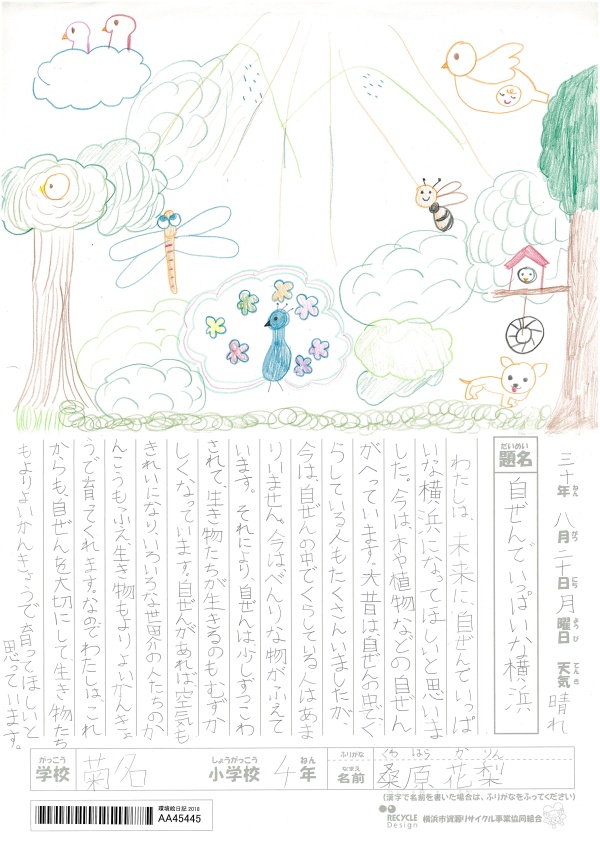 三十年 八月二十日 月曜日 天気 晴れ
ねん がつ にち ようび てんき
だいめい
題名
自ぜんでいっぱいな横浜
わたしは、未来に、自ぜんでいっぱ
いな横浜になってほしいと思いま
した。今は、木や植物などの自ぜん
がへっています。大昔は自ぜんの中でく
らしている人もたくさんいましたが、
今は、自ぜんの中でくらしている人はあま
りいません。今は、べんりな物がふえて
います。それにより、自ぜんは少しずつこわ
されて、生き物たちが生きるのもむずか
しくなっています。自ぜんがあれば、空気も
きれいになり、いろいろな世界の人たちのか
んこうもふえ、生き物もよりよいかんきょ
うで育ってくれます。なのでわたしは、これ
からも、自ぜんを大切にして、生き物たち
もよりよいかんきょうで育ってほしいと
思っています。
がっこう
学校
菊名
しょうがっこう
小学校
4年
ねん
ふりがな
くわ はら か りん
なまえ
名前
桑原花梨
(漢字で名前を書いた場合は、ふりがなをふってください)
環境絵日記 2018
AA45445
RECYCLE
Design
横浜市資源リサイクル事業協同組合